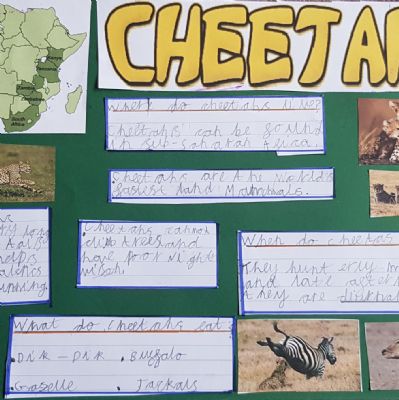 CHEETA
Kenya
Tanzania
Zambia
Zimbabwe
South
Africa
Where do cheetahs live?
Cheetahs can be found
in sub-saharan Africa.
Cheetahs are the world's
fastest land Mammals.
Cheetahs cannot
climb trees and
have poor night
vision.
When do cheetas
They hunt erly
and late after
they are
What do cheetahs eat?
.Dik-Dik .Buffalo
.Gazelle .Jackals